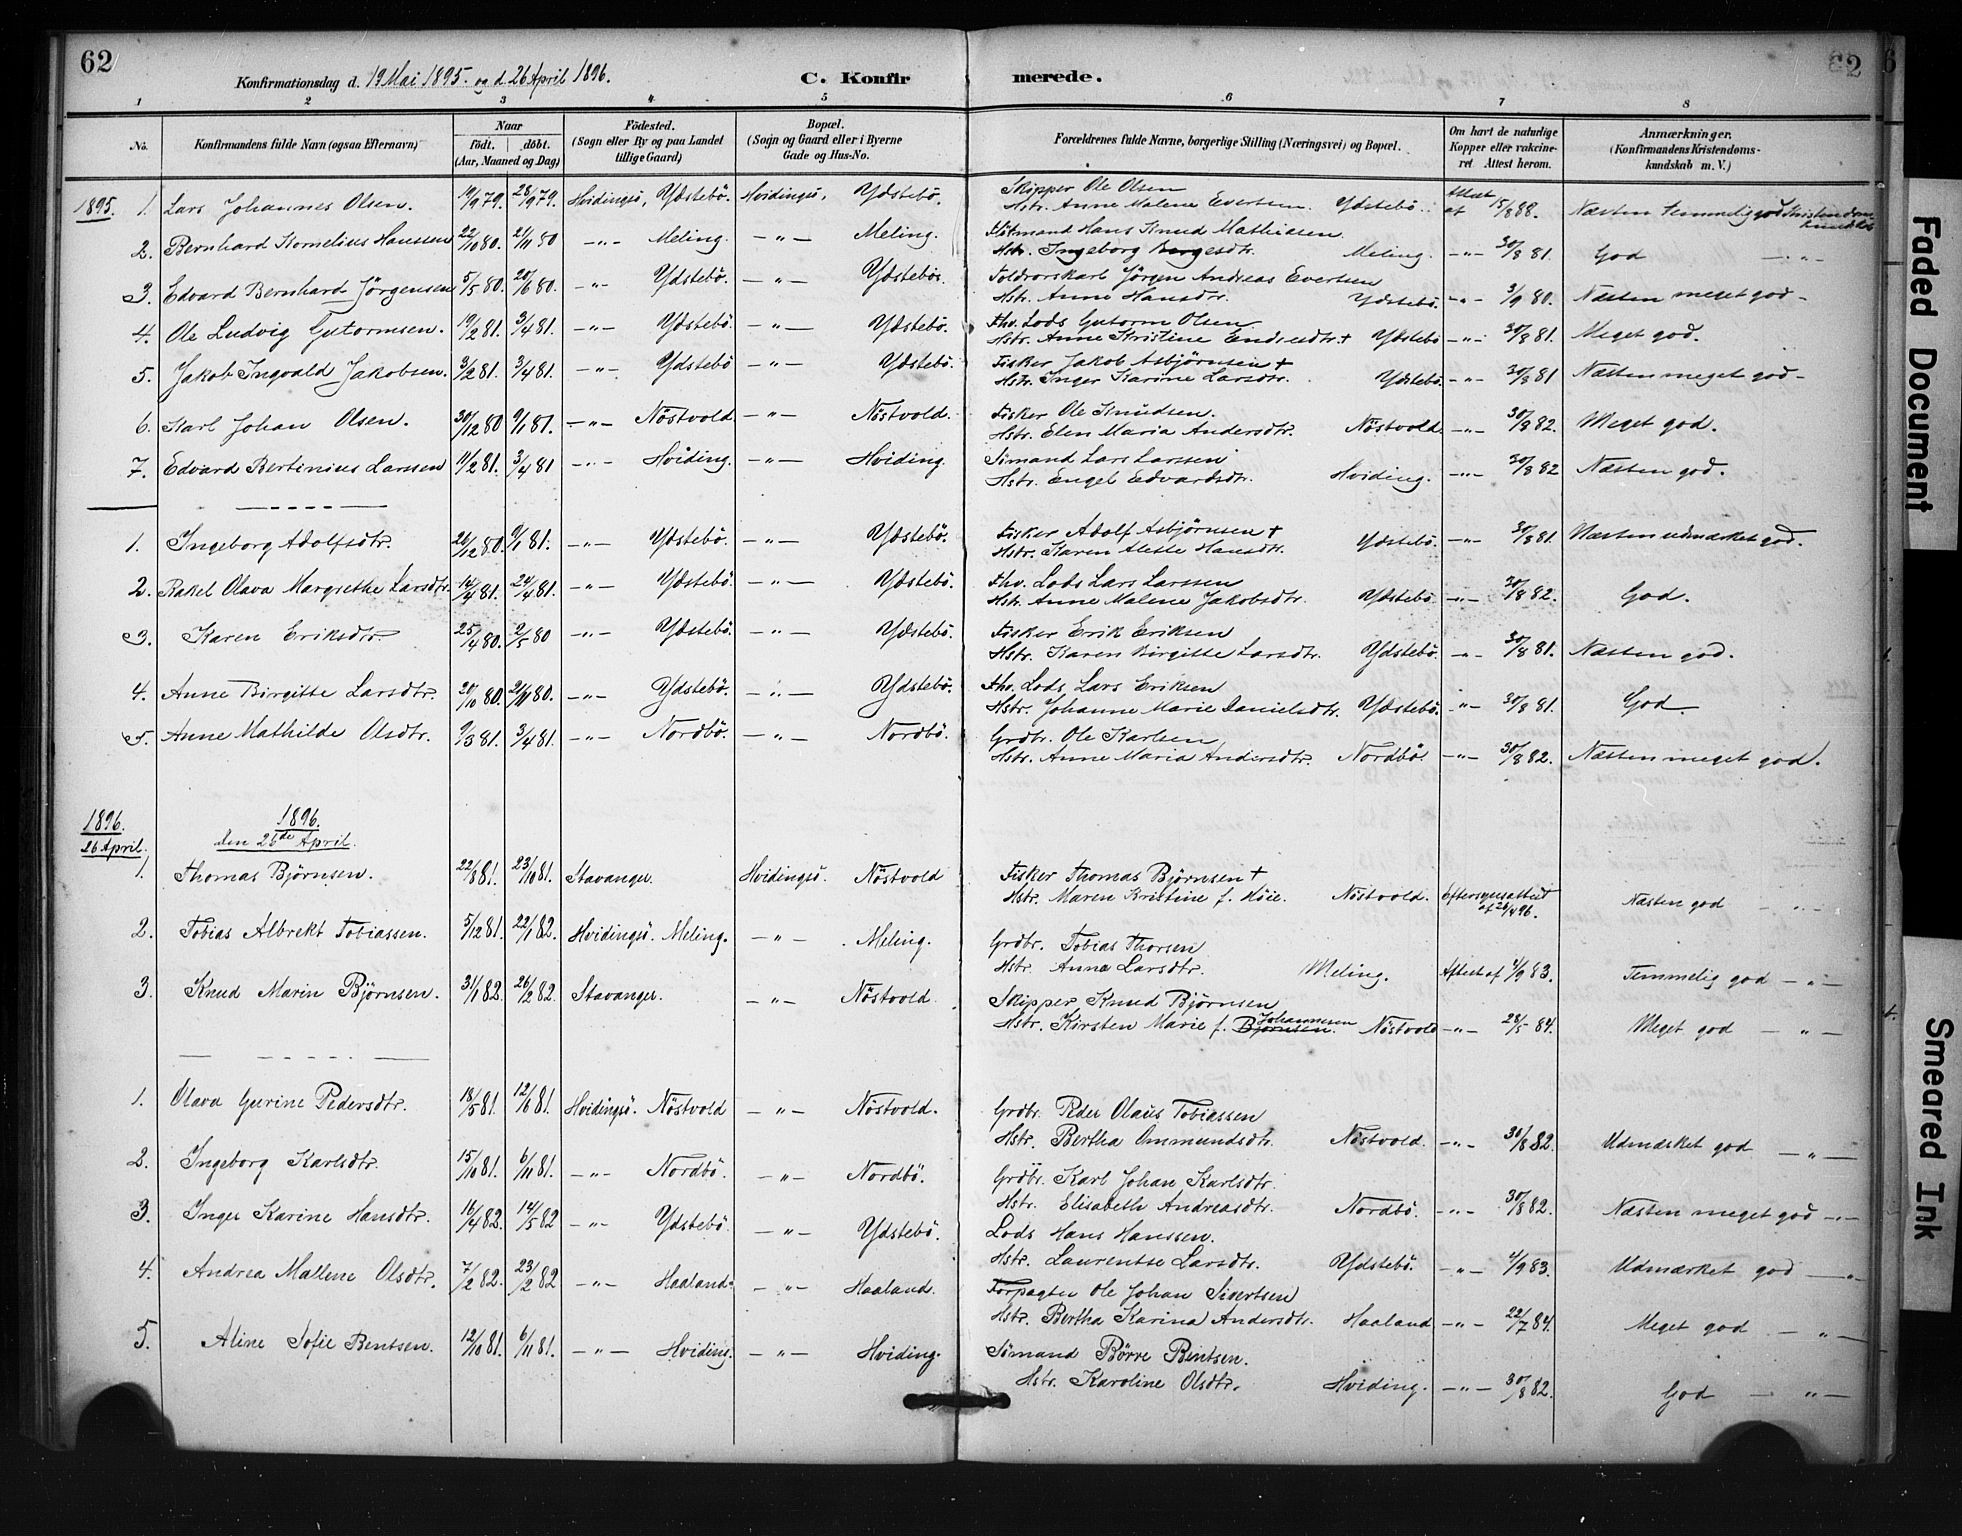 62
Konfirmationsdag d. 19 Mai 1895. og d. 26 April 1896.
C. Konfirmerede.
62
1 2 3 4 5 6 7 8
No.
Konfirmandens fulde Navn (ogsaa Efternavn)
Naar
født. døbt.
(Aar, Maaned og Dag)
Fødested.
(Sogn eller By og paa Landet
tillige Gaard)
Bopæl.
(Sogn og Gaard eller i Byerne
Gade og Hus-No.
Forældrenes fulde Navne, borgerlige Stilling (Næringsvei) og Bopæl.
Om havt de naturlige
Kopper eller vakcine-
ret Attest herom.
Anmærkninger.
(Konfirmandens Kristendoms-
kundskab m. V.)
1895. 1. Lars Johannes Olsen. 19/9 79. 28/9 79. Hvidingsö, Ydstebö. Hvidingsö, Ydstebö. Skipper Ole Olsen
Hstr. Anne Malene Evertsen. Ydstebö. Attest af 15/8 88. Næsten temmelig god Kristendoms
2. Bernhard Kornelius Hanssen 22/10 80. 21/11 80 -"- Meling. -"- Meling. Hans Knud Mathiasen
Hstr. Ingeborg Bergesdtr. Meling. -"- 30/8 81. God -"-
3. Edvard Bernhard Jörgensen 5/5 80. 20/6 80. -"- Ydstebö. -"- Ydstebö. Toldrorskarl Jörgen Andreas Evertsen
Hstr. Anne Hansdtr. Ydstebö. -"- 3/9 80. Næsten meget god -
4. Ole Ludvig Gutormsen. 19/2 81. 3/4 81. -"- Ydstebö. -"- Ydstebö. Fhv. Lods Gutorm Olsen
Hstr. Anne Kristine Endresdtr + Ydstebö -"- 30/8 81. Meget god.
5. Jakob Ingvald Jakobsen. 3/2 81. 3/4 81. -"- Ydstebö -"- Ydstebö. Fisker Jakob Asbjörnsen +
Hstr. Inger Karine Larsdtr. Ydstebö. -"- 30/8 81 Næsten meget god -
6. Karl Johan Olsen. 30/12 80 9/1 81. -"- Nöstvold. -"- Nöstvold. Fisker Ole Knudsen.
Hstr. Elen Maria Andersdtr. Nöstvold. -"- 30/8 82. Meget god.
7. Edvard Bertinius Larssen 11/2 81. 3/4 81 -"- Hviding. -"- Hviding. Sömand Lars Larssen
Hstr. Engel Edvardsdtr. Hviding. -"- 30/8 82 Næsten god.
1. Ingeborg Adolfsdtr. 26/12 80. 9/1 81. -"- Ydstebö. -"- Ydstebö. Fisker Adolf Asbjörnsen +
Hstr. Karen Hansdtr. Ydstebö. -"- 30/8 81. Næsten udmærket god.
2. Rakel Olava Margrethe Larsdtr. 14/4 81. 24/4 81. -"- Ydstebö. -"- Ydstebö. Fhv. Lods Lars Larssen
Hstr. Anne Malene Jakobsdtr. Ydstebö. -"- 30/8 82. God.
3. Karen Eriksdtr. 25/4 80. 2/5 80 -"- Ydstebö. -"- Ydstebö. Fisker Erik Eriksen
Hstr. Karen Birgitte Larsdtr. Ydstebö. -"- 30/8 81. Næsten god.
4. Anne Birgitte Larsdtr. 20/10 80. 2/11 80. -"- Ydstebö. -"- Ydstebö. Fhv. Lods Lars Eriksen
Hstr. Johanne Marie Danielsdtr. Ydstebö. -"- 30/8 81. God.
5. Anne Mathilde Olsdtr. 9/3 81. 3/4 81. -"- Nordbö. -"- Nordbö. Grdbr. Ole Karlsen
Hstr. Anne Maria Andersdtr. Nordbö. -"- 30/8 82. Næsten meget god.
1896. 1896.
26 April. den 26de April.
1. Thomas Björnsen. 22/8 81. 23/10 81. Stavanger. Hvidingsö. Nöstvold Fisker Thomas Björnsen +
Hstr. Maren Kristine f. Höie. Nöstvold. Eftersynsattest af 26/4 96. Næsten god -"-
2. Tobias Albrekt Tobiassen. 5/12 81. 22/1 82. Hvidingsö. Meling. -"- Meling. Grdbr. Tobias Thorsen
Hstr. Anna Larsdtr. Meling. Attest af 4/9 83. Temmelig god -"-
3. Knud Marin Björnsen. 31/1 82. 26/2 82. Stavanger. -"- Nöstvold. Skipper Knud Björnsen
Hstr. Kirsten Marie f. Björnsen. Johannesen Nöstvold -"- 28/5 84. Meget god -"-
1. Olava Gurine Pedersdtr. 18/5 81. 12/6 81. Hvidingsö. Nöstvold -"- Nöstvold. Grdbr. Peder Olaus Tobiassen
Hstr. Bertha Ommundsdtr. Nöstvold. -"- 30/8 82. Udmærket god -"-
2. Ingeborg Karlsdtr. 15/10 81. 6/11 81. -"- Nordbö. -"- Nordbö. Grdbr. Karl Johan Karlsdtr.
Hstr. Elisabeth Andreasdtr. Nordbö. -"- 30/8 82. Næsten meget god -"-
3. Inger Karine Hansdtr. 16/4 82. 14/5 82 -"- Ydstebö. -"- Ydstebö. Lods Hans Hanssen.
Hstr. Laurentse Larsdtr. Ydstebö. -"- 4/9 83. Udmærket god -"-
4. Andrea Mallene Olsdtr. 7/2 82. 23/2 82 -"- Haaland. -"- Haaland. Forpagter Ole Johan Sivertsen
Hstr. Bertha Karina Andersdtr. Haaland -"- 22/7 84. Meget god -"-
5. Aline Sofie Bentsen. 12/10 81. 6/11 81. -"- Hviding. -"- Hviding. Sömand Börre Bentsen.
Hstr. Karoline Olsdtr. Hviding. -"- 30/8 82. God -"-
Faded Document
Smeared Ink